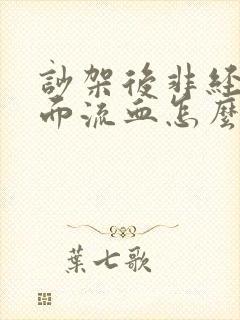 訬架後非经
而流血怎麼
葉七歌